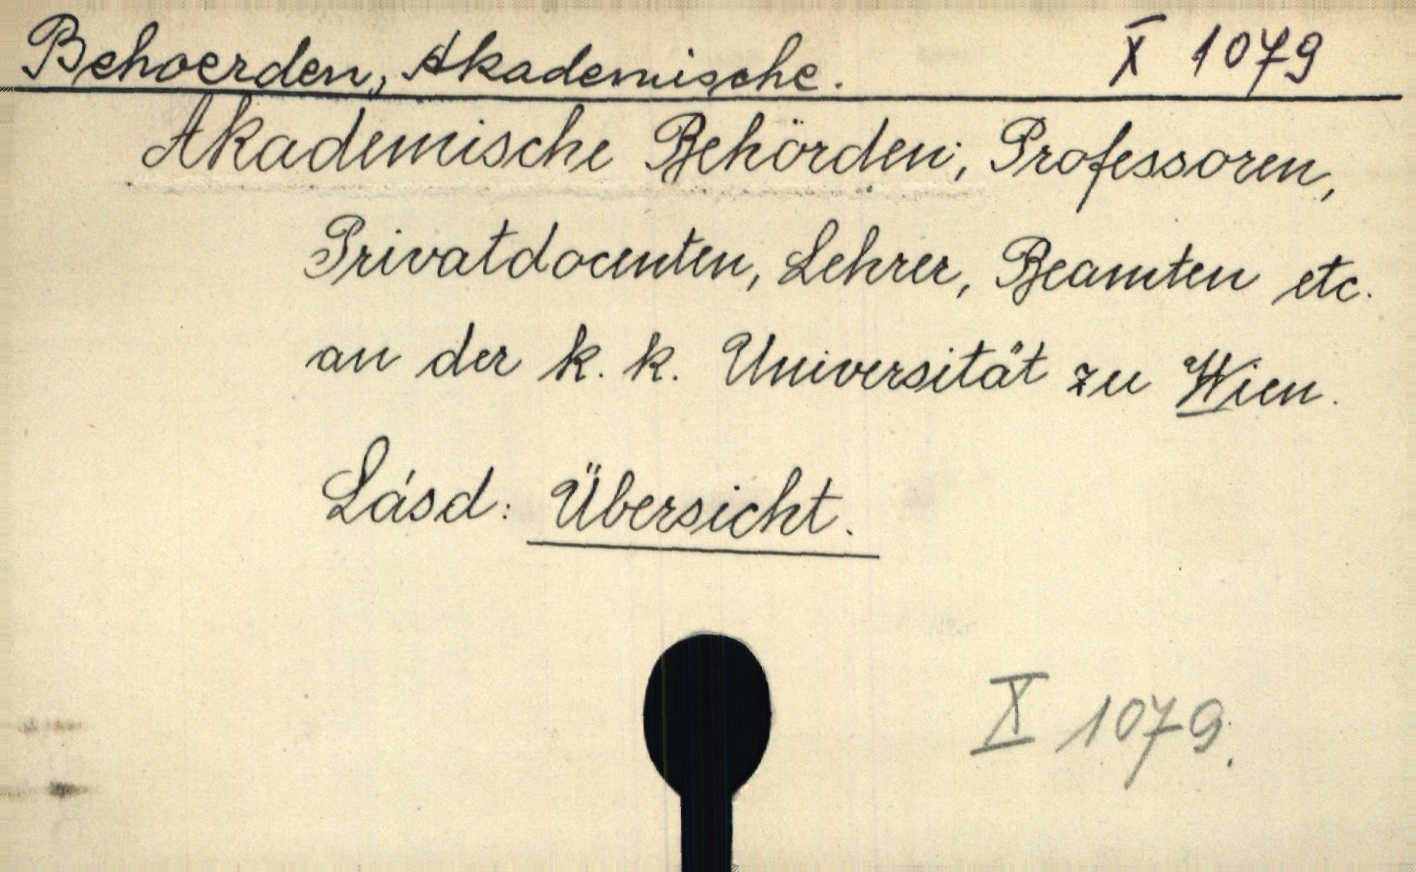 Behoerden, Akademische. X 1079
Akademische Behörden, Professoren,
Privatdocenten, Lehrer, Beamten etc.
an der k. k. Universität zu Wien.
Lásd: Übersicht.
X 1079.